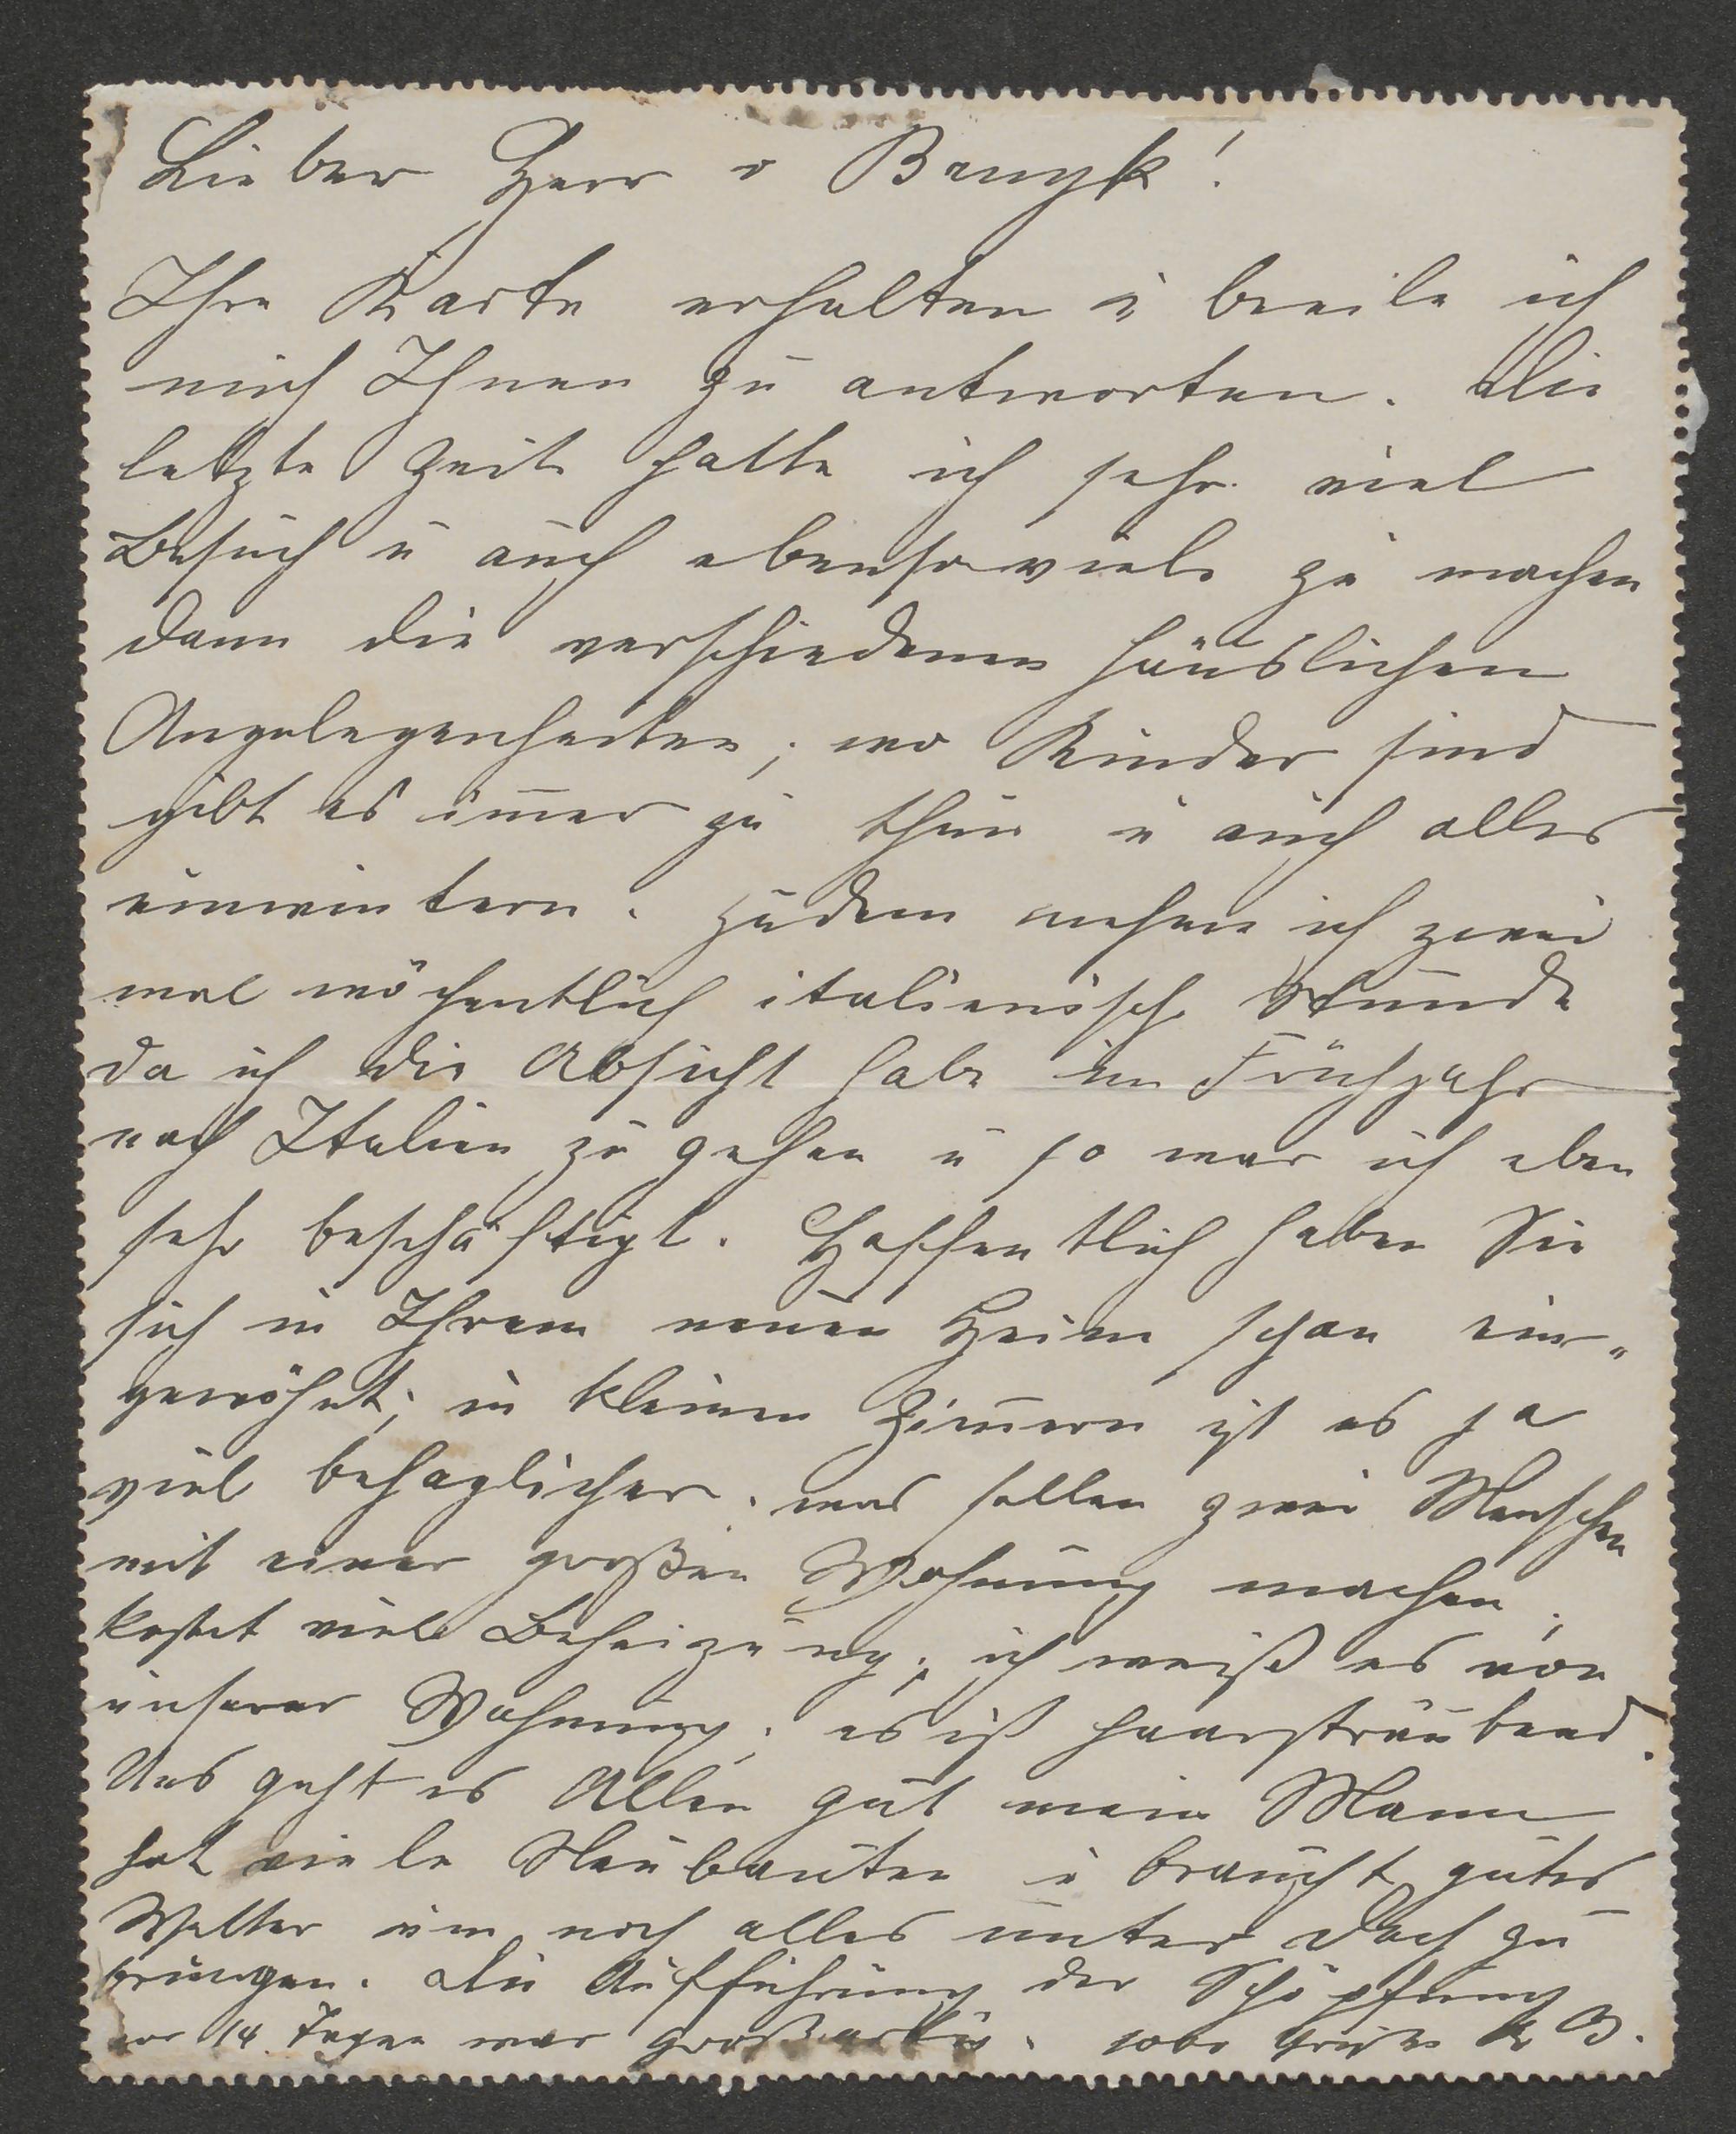 Lieber Herr v Bruyk!
Ihre Karte erhalten u beeile ich
mich Ihnen zu antworten. Die
letzte Zeit hatte ich sehr viel
Besuch u auch ebensoviele zu machen
dann die verschiedenen häuslichen
Angelegenheiten; wo Kinder sind
gibt es im̅er zu thun u auch alles
einwintern. Zudem nehme ich zwei
mal wöchentlich italienische Stunde
da ich die Absicht habe im Frühjahr
nach Italien zu gehen u so war ich eben
sehr beschäftigt. Hoffentlich haben Sie
sich in Ihrem neuen Heim schon ein„
gewöhnt; in kleinen Zim̅ern ist es ja
viel behaglicher. was sollen zwei Menschen
mit einer großen Wohnung machen.
kostet viele Beheizung; ich weiß es von
unserer Wohnung; es ist haarsträubend.
Uns geht es Allen gut mein Mann
hat viele Neubauten u braucht gutes
Wetter um noch alles unter Dach zu
bringen. Die Aufführung der Schöpfung
vor 14 Tagen war großartig. B.